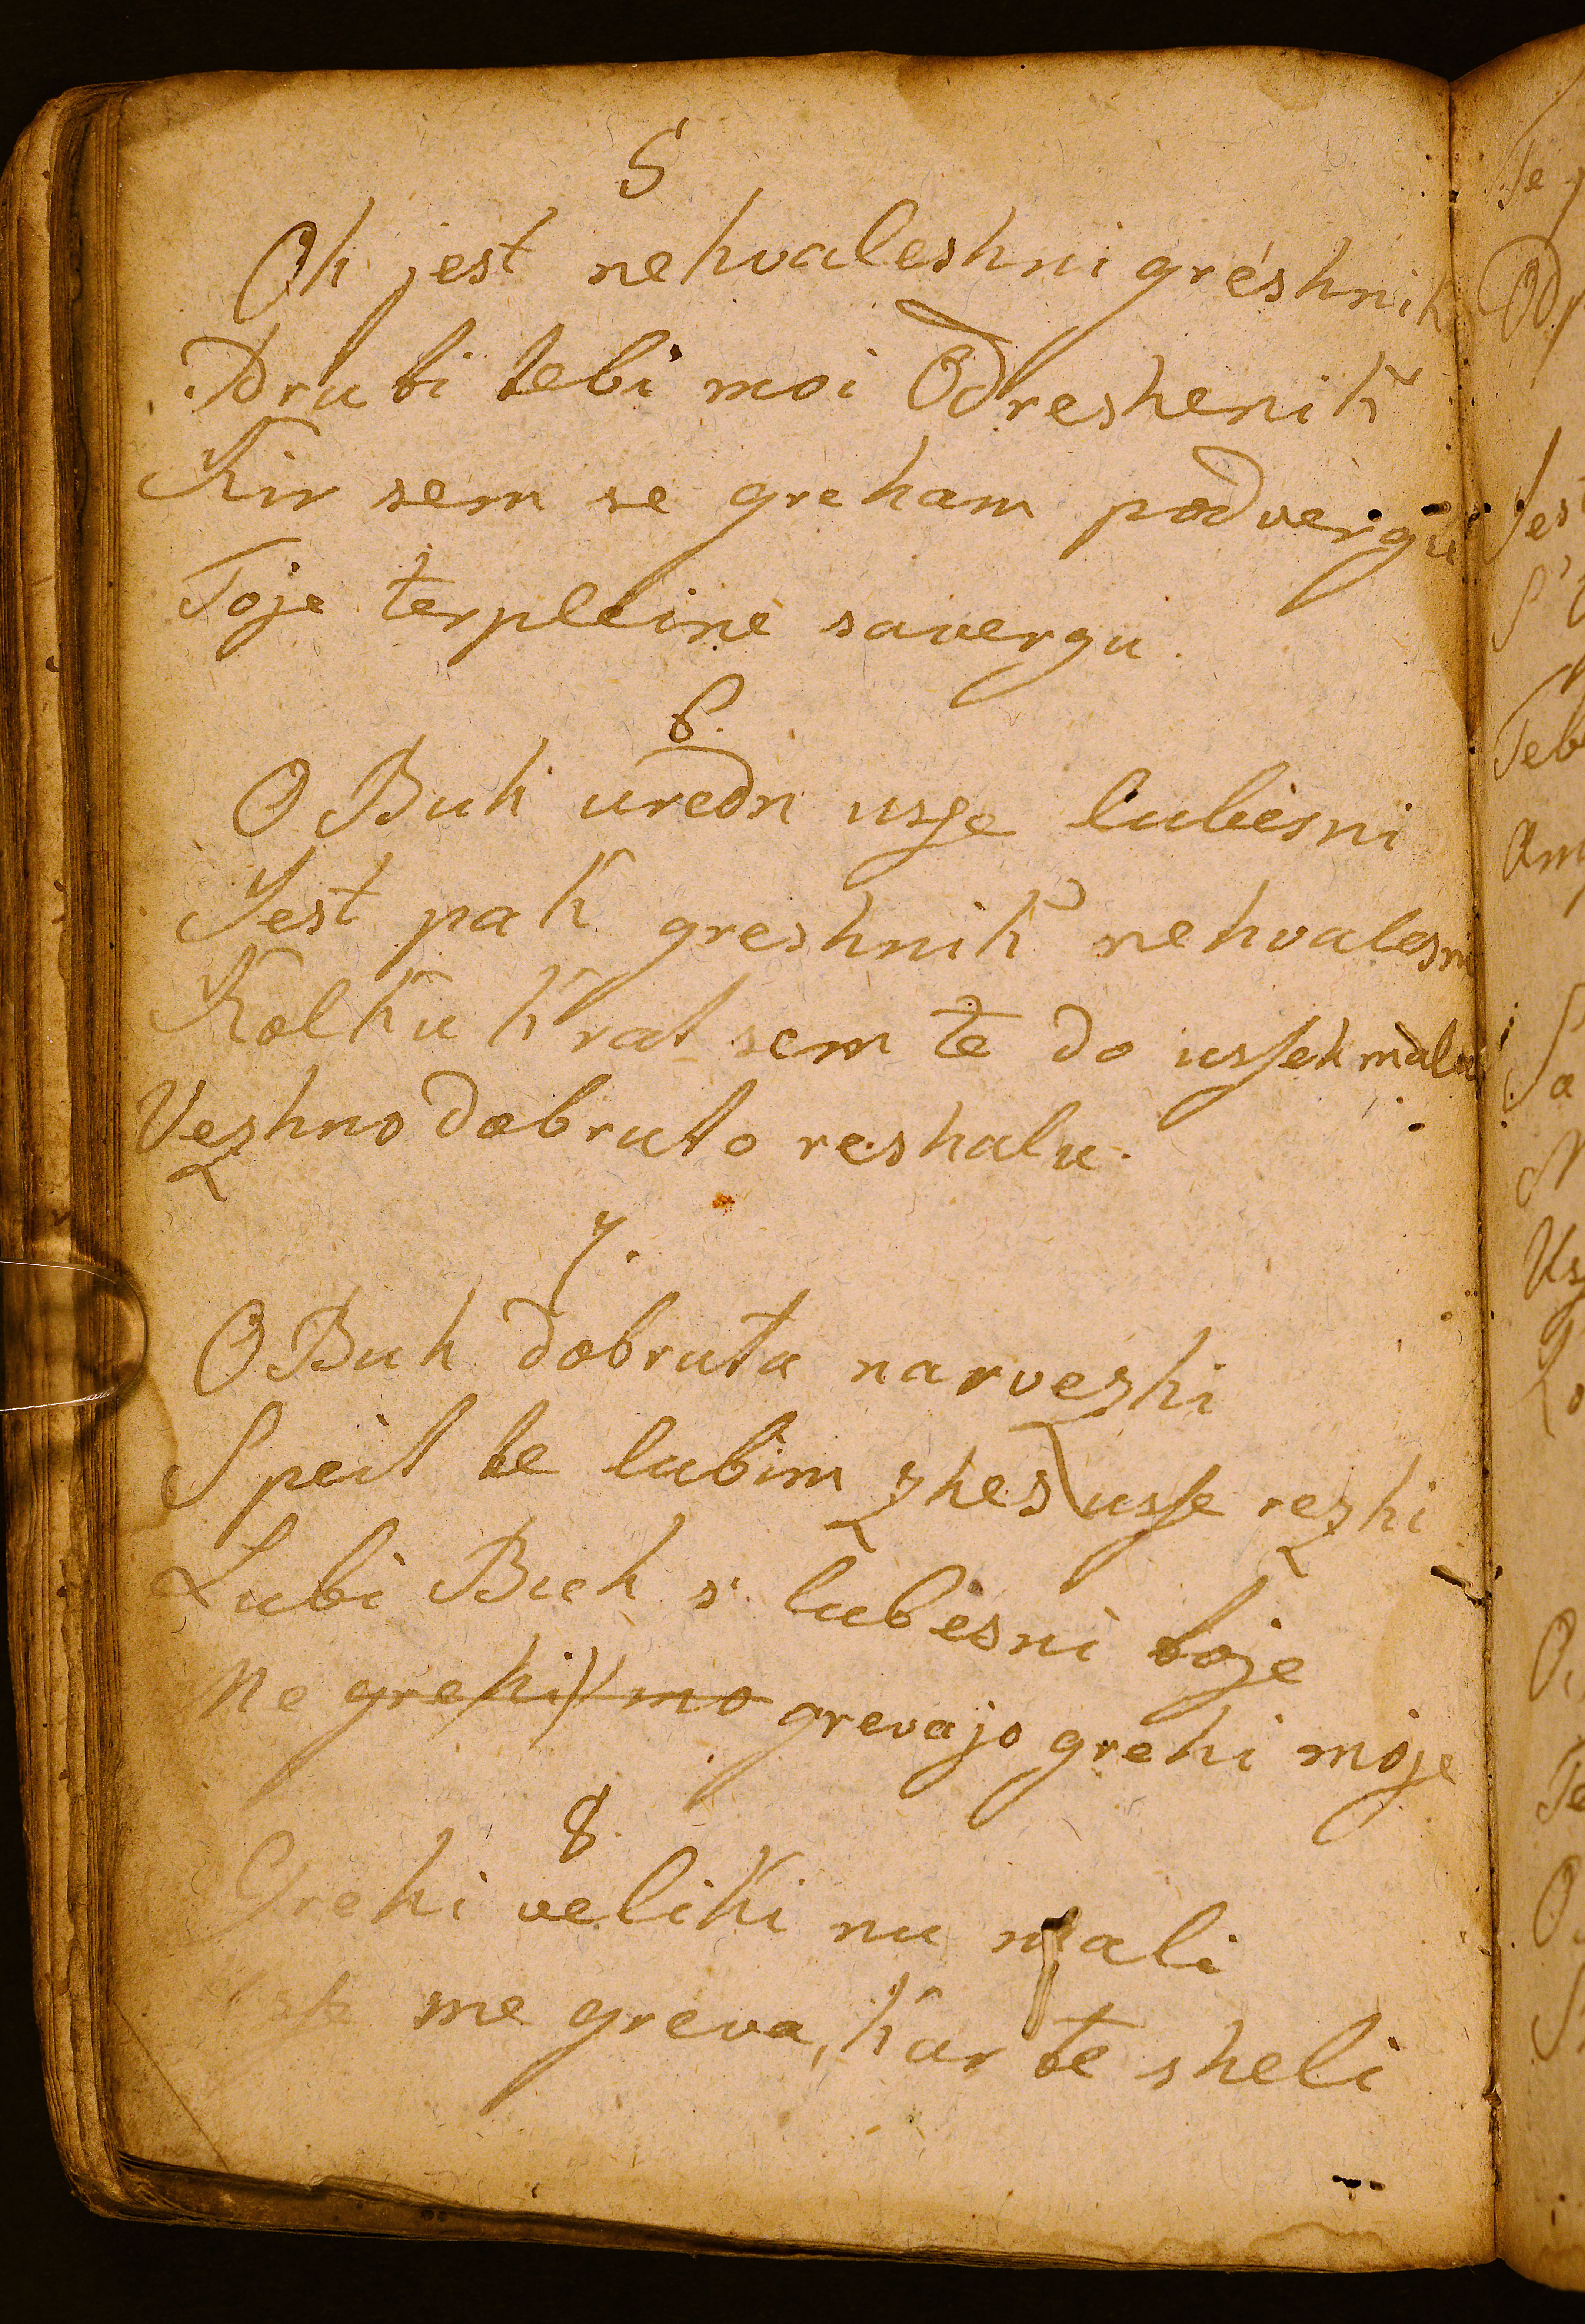 5
Oh jest nehvaleshni greshnik
Drubi tebi moi Odreshenik
Kir sem se greham podvergu
Toje terpleine savergu.
6.
O Buh uredn usse lubesni
Jest pak greshnik nehvalesni
Kolku krat sem te do usseh malu
Vezhno dobruto reshalu.
7.
O Buh dobruta narvezhi
Speit te lubim zhes usse rezhi
Lubi Buh s' lubesni toje
Me grevajo grehi moje
8.
Grehi veliki nu mali
me greva, kar te sheli